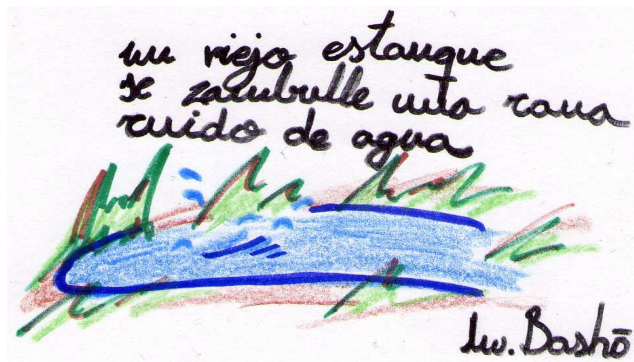 un viejo estanque
se zambulle una rana
ruido de agua
Lw. Bashō